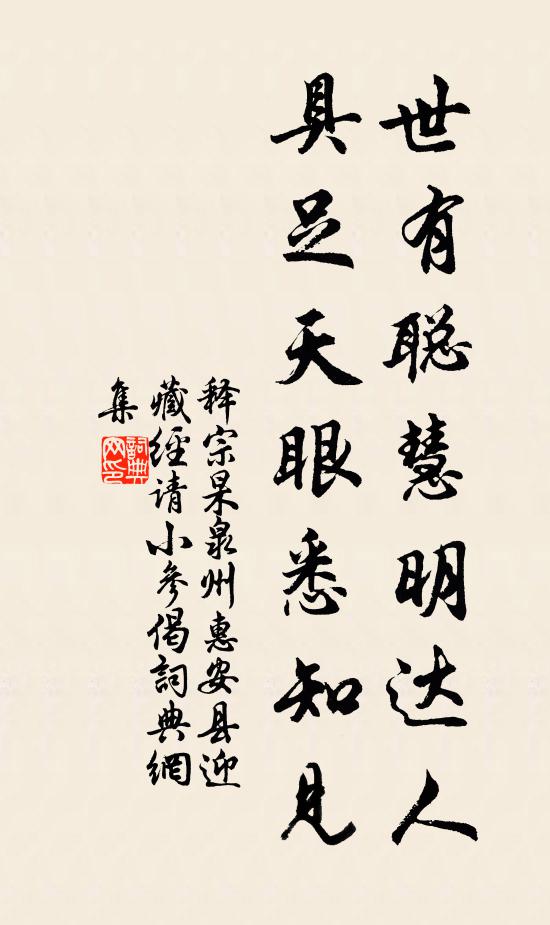 世有聪慧明达人
具足天眼悉知见
释宗杲泉州惠安县迎
藏經请小参偈詞典網
集
詞典网印